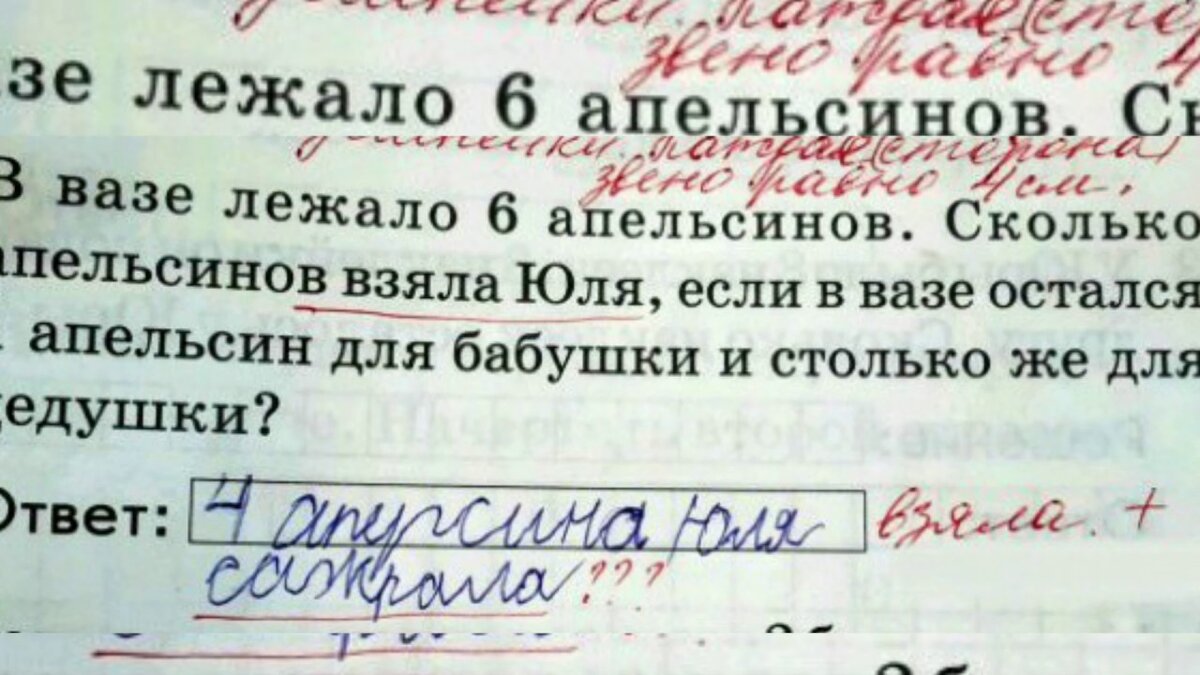 каждая (сторо
звено равно 4
азе лежало 6 апельсинов. Ск
каждая (сторона)
звено равно 4 см.
В вазе лежало 6 апельсинов. Сколько
апельсинов взяла Юля, если в вазе остался
апельсин для бабушки и столько же для
дедушки?
Ответ: 4 апурсина юля взяла. +
сажрала ???